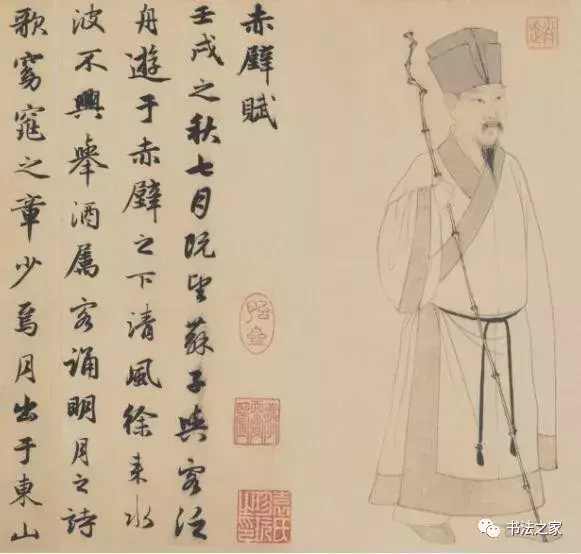 赤壁賦
壬戌之秋七月既望蘇子與客泛
舟遊于赤壁之下清風徐来水
波不興舉酒属客誦明月之詩
歌窈窕之章少焉月出于東山
书法之家